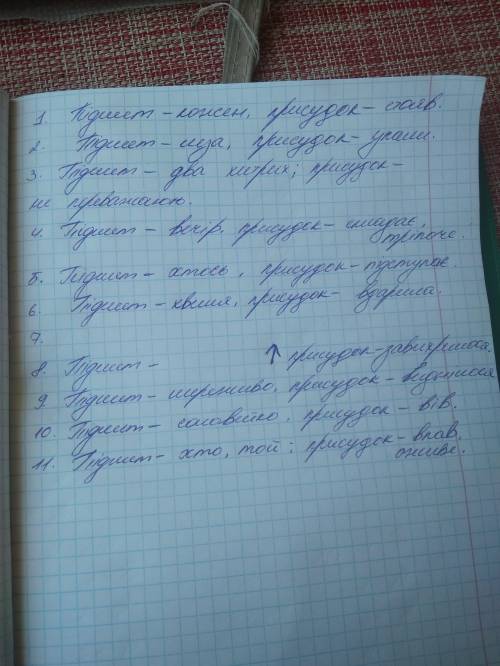 1 Підмет - кожен, присудок - стояв.
2. Підмет - сиза, присудок - упали.
3. Підмет - два хитрих; присудок -
не переважають.
4. Підмет - вечір, присудок - складає,
тріпоче.
5. Підмет - хтось, присудок - підступає.
6. Підмет - хвиля, присудок - вдарила.
7.
8. Підмет - ↑ присудок - завихрилося.
9 Підмет - мереживо, присудок - відбилося
10. Підмет - соловейко, присудок - вів.
11. Підмет - хто, той; присудок - впав.
оживе.